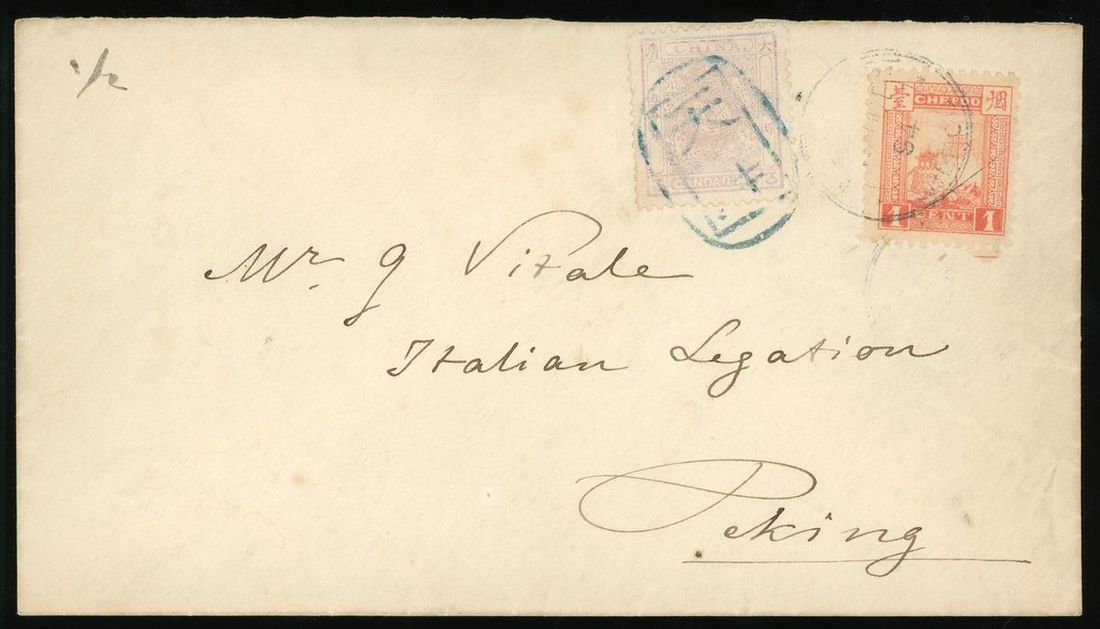 1/2
清 CHINA 大
3
CHEFOO
臺 烟
94
1 CENT 1
Mr. G Vitale
Italian Legation
Peking